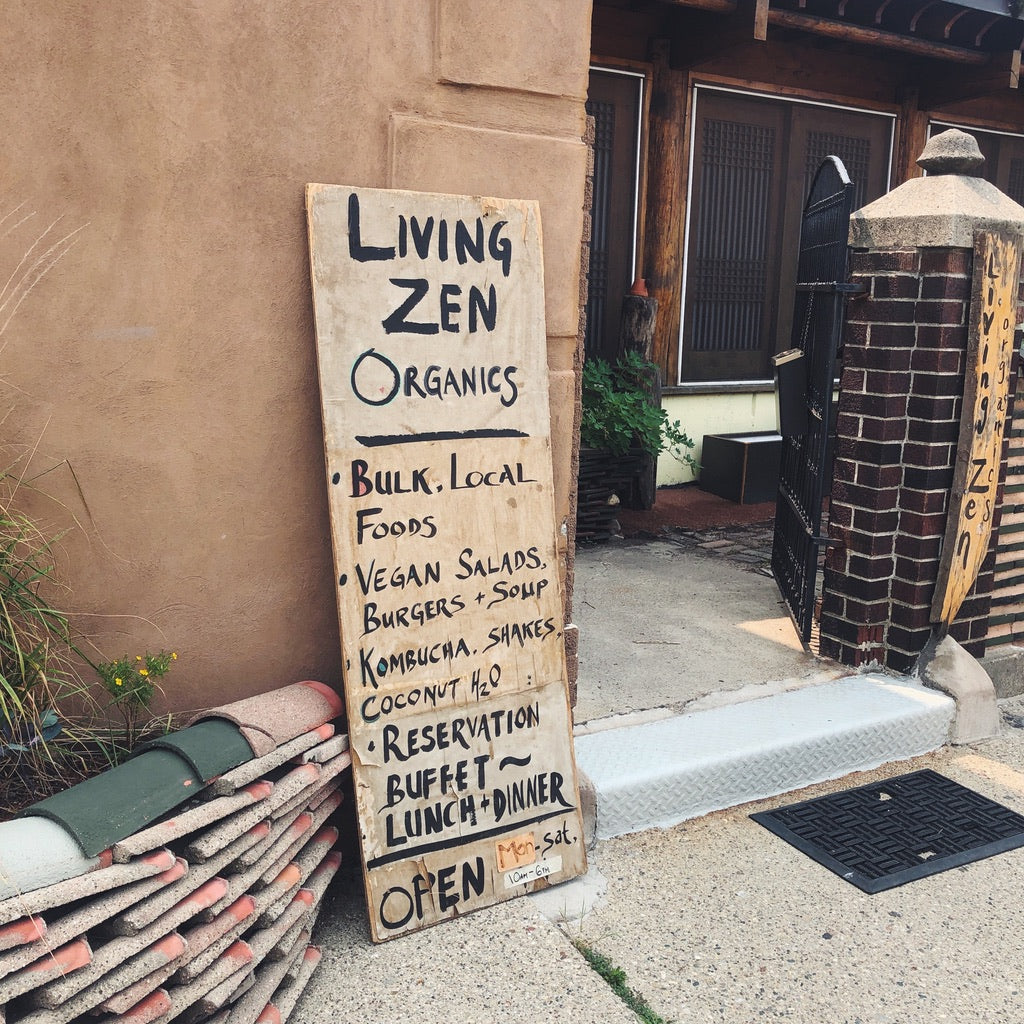 LIVING
ZEN
ORGANICS
• BULK, LOCAL
FOODS
• VEGAN SALADS,
BURGERS + SOUP
• KOMBUCHA, SHAKES,
COCONUT H2O
• RESERVATION
BUFFET ~
LUNCH + DINNER
OPEN Mon-Sat,
10AM-6PM
Living Zen
organics